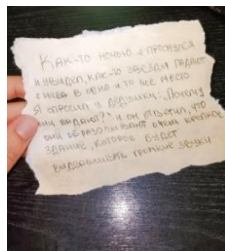 Как-то ночью я проснулся
и увидел, как-то звезды падают
с неба в одно и то же место
Я спросил у дедушки: „Почему
они падают?" и он ответил, что
они образовывают очень крепкое
здание, которое будет
выдавливать громкие звуки